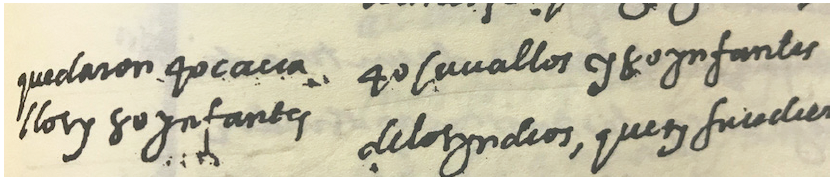 quedaron 40 caua
llos y 80 ynfantes
40 cauallos y 80 ynfantes
de los yndios, que